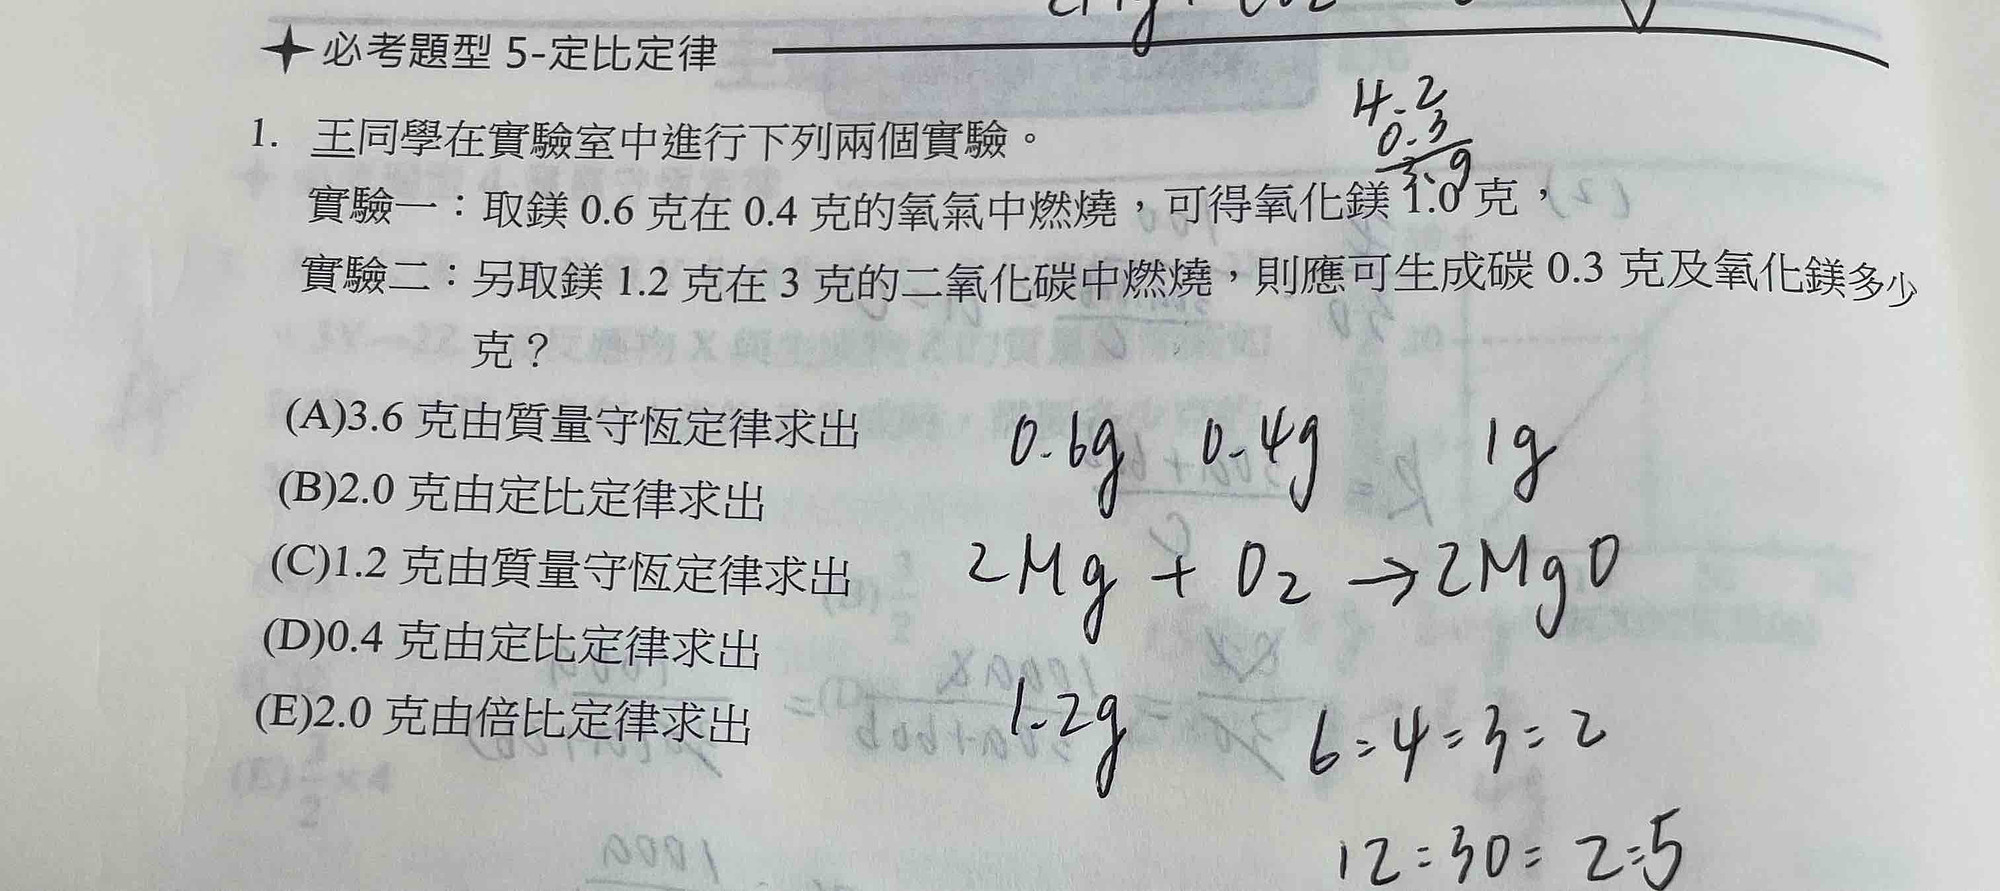 必考題型 5-定比定律
4.2
0.3
3.9
1. 王同學在實驗室中進行下列兩個實驗。
實驗一：取鎂 0.6 克在 0.4 克的氧氣中燃燒，可得氧化鎂 1.0 克，
實驗二：另取鎂 1.2 克在 3 克的二氧化碳中燃燒，則應可生成碳 0.3 克及氧化鎂多少
克？
(A)3.6 克由質量守恆定律求出
(B)2.0 克由定比定律求出
(C)1.2 克由質量守恆定律求出
(D)0.4 克由定比定律求出
(E)2.0 克由倍比定律求出
0.6g 0.4g 1g
2Mg + O2 → 2MgO
1.2g
6:4=3:2
12:30=2:5